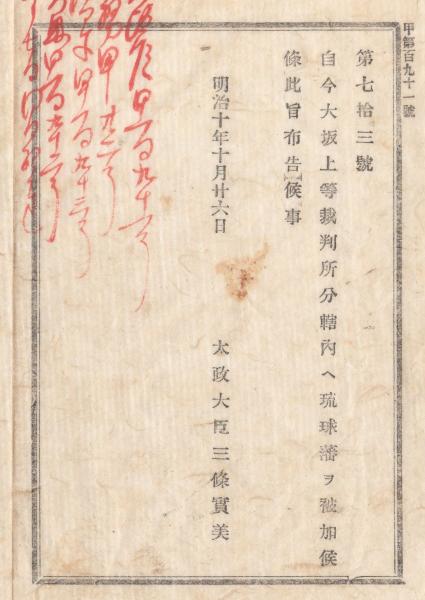 甲第百九十一號
第七拾三號
自今大坂上等裁判所分轄內ヘ琉球藩ヲ被加候
條此旨布告候事
明治十年十月廿六日
太政大臣三條實美
甲百九十一号
甲百九十三号